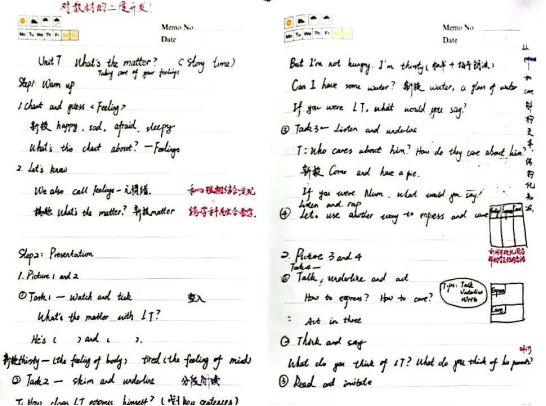 对教材的二度开发!
Memo No.
Date
Mo Tu We Th Fr
Unit 7 What's the matter? (Story time)
Taking care of your feelings
Step1: Warm up
1. Chant and guess <Feeling>
新授 happy, sad, afraid, sleepy
What's this chant about? — Feelings
2. Let's know
We also call feelings —
What's the matter? 新授 matter
Step2: Presentation
1. Picture 1 and 2
① Task1 — Watch and tick
What's the matter with LT?
He's ( ) and ( ).
新授 thirsty — (the feeling of body) tired (the feeling of mind)
② Task2 — skim and underline
T: How does LT express himself? (key sentences)
Memo No.
Date
Mo Tu We Th Fr
But I'm not hungry. I'm thirsty
Can I have some water? 新授 water, a glass of water
If you were LT, what would you say?
③ Task3 — Listen and underline
T: Who cares about him? How do they care about him?
新授 Come and have a pie.
If you were Mum, what would you say?
Listen and rap
④ Let's use another way to express and care
2. Picture 3 and 4
Task4 —
① Talk, underline and act
Tips: Talk
Underline
Write
How to express? How to care?
Express
Care
Act in three
② Think and say
What do you think of LT? What do you think of his parents?
③ Read and imitate